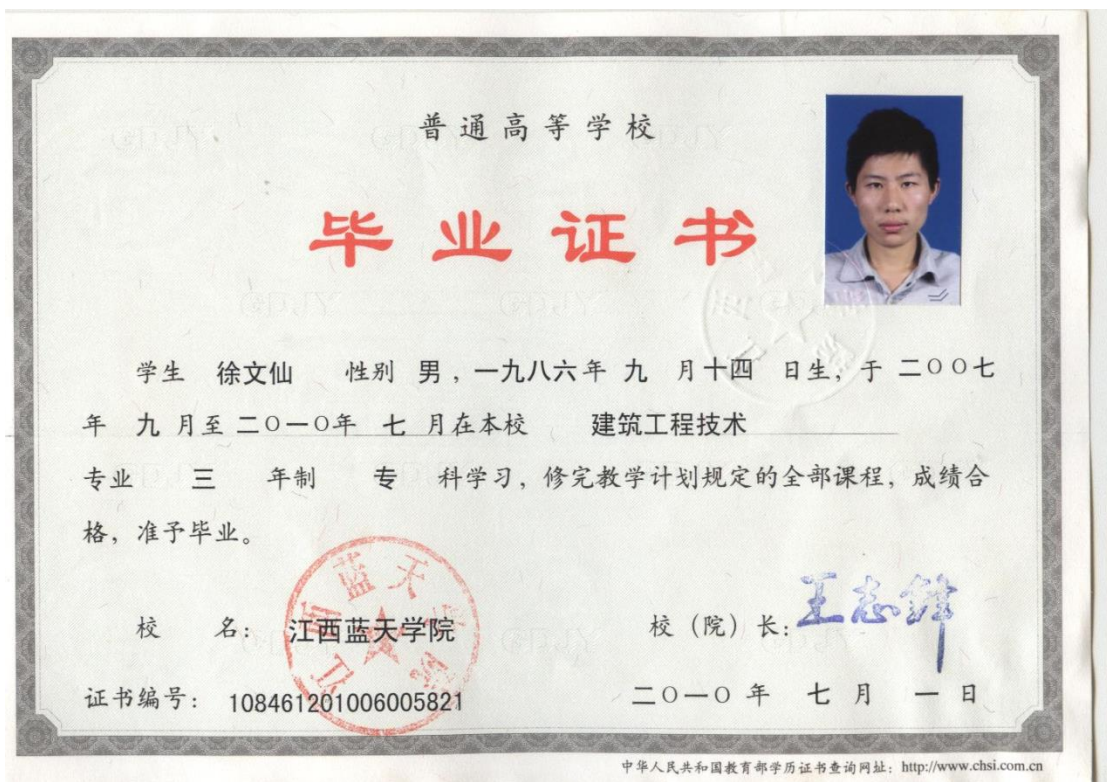 普通高等学校
毕业证书
学生 徐文仙 性别 男,一九八六年 九 月十四 日生,于 二〇〇七
年 九 月至 二〇一〇年 七 月在本校 建筑工程技术
专业 三 年制 专 科学习,修完教学计划规定的全部课程,成绩合
格,准予毕业。
江西蓝天学院
校 名: 江西蓝天学院 校(院)长: 王志锋
证书编号: 108461201006005821 二〇一〇 年 七 月 一 日
中华人民共和国教育部学历证书查询网址: http://www.chsi.com.cn